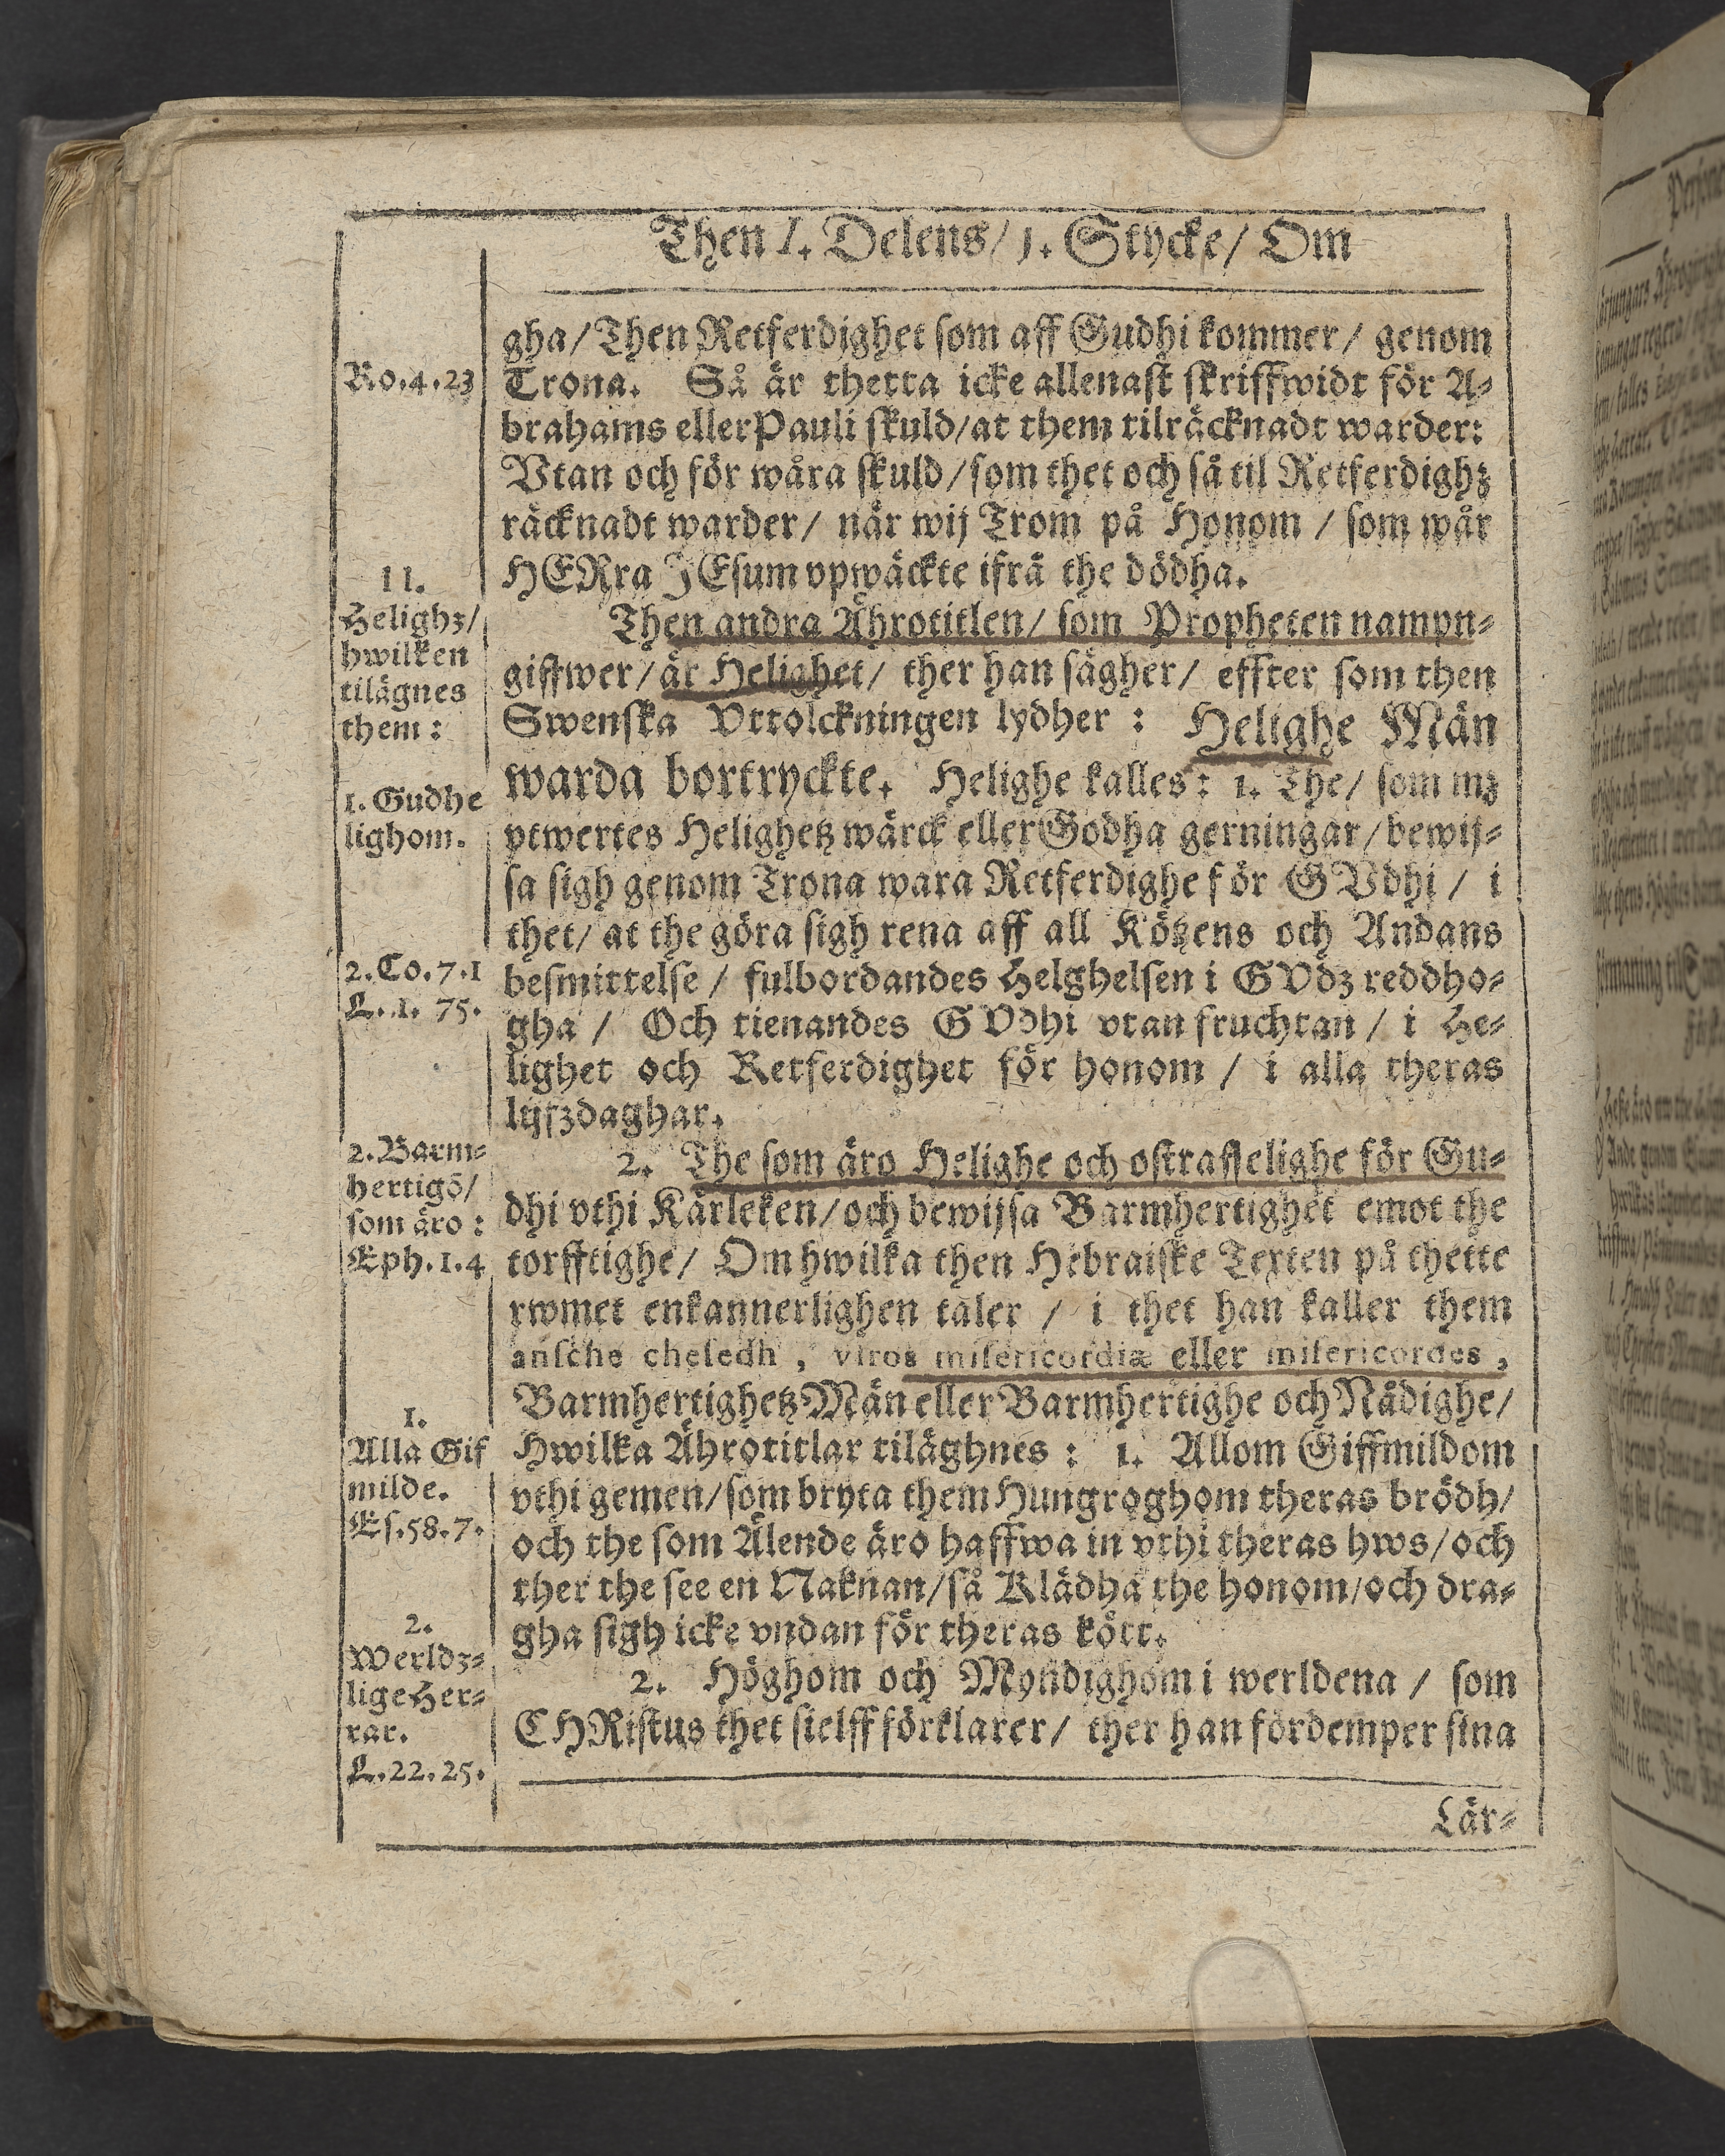 Then I. Delens/ 1. Stycke/ Om
gha/ Then Retferdighet som aff Gudhi kommer/ genom
Ro.4.23
Trona. Så är thetta icke allenast skriffwidt för A-
brahams eller Pauli skuld/ at them tilräcknadt warder:
Vtan och för wåra skuld/ som thet och så til Retferdighz
räcknadt warder/ när wij Trom på Honom / som wår
HERra JEsum vpwäckte ifrå the dödha.
II.
Helighz/
hwilken
tilägnes
them:
Then andra Ährotitlen/ som Propheten nampn-
giffwer/ är Helighet/ ther han sägher/ effter som then
Swenska Vttolckningen lydher : Helighe Män
warda bortryckte. Helighe kalles : 1. The/ som mz
1. Gudhe
lighom.
vtwertes Helighetz wärck eller Godha gerningar/ bewij-
sa sigh genom Trona wara Retferdighe för GVdhi / i
thet/ at the göra sigh rena aff all Kötzens och Andans
2.Co.7.1
L.1. 75.
besmittelse / fulbordandes Helghelsen i GVdz reddho-
gha / Och tienandes GVdhi vtan fruchtan / i He-
lighet och Retferdighet för honom / i alla theras
lijfzdaghar.
2. Barm-
hertigō/
som äro :
Eph.1.4
2. The som äro Helighe och ostraffelighe för Gu-
dhi vthi Kärleken/ och bewijsa Barmhertighet emot the
torfftighe/ Om hwilka then Hebraiske Texten på thette
rwmet enkannerlighen taler / i thet han kaller them
ansche cheledh , viros misericordiæ eller misericordes ,
Barmhertighetz Män eller Barmhertighe och Nådighe/
1.
Alla Gif
milde.
Es.58.7.
Hwilka Ährotitlar tiläghnes : 1. Allom Giffmildom
vthi gemen/ som bryta them Hungroghom theras brödh/
och the som Älende äro haffwa in vthi theras hws/ och
ther the see en Naknan/ så Klädha the honom/ och dra-
gha sigh icke vndan för theras kött.
2.
Werldz-
lige Her-
rar.
L.22.25.
2. Höghom och Myndighom i werldena / som
CHRistus thet sielff förklarer/ ther han fördemper sina
Lär-